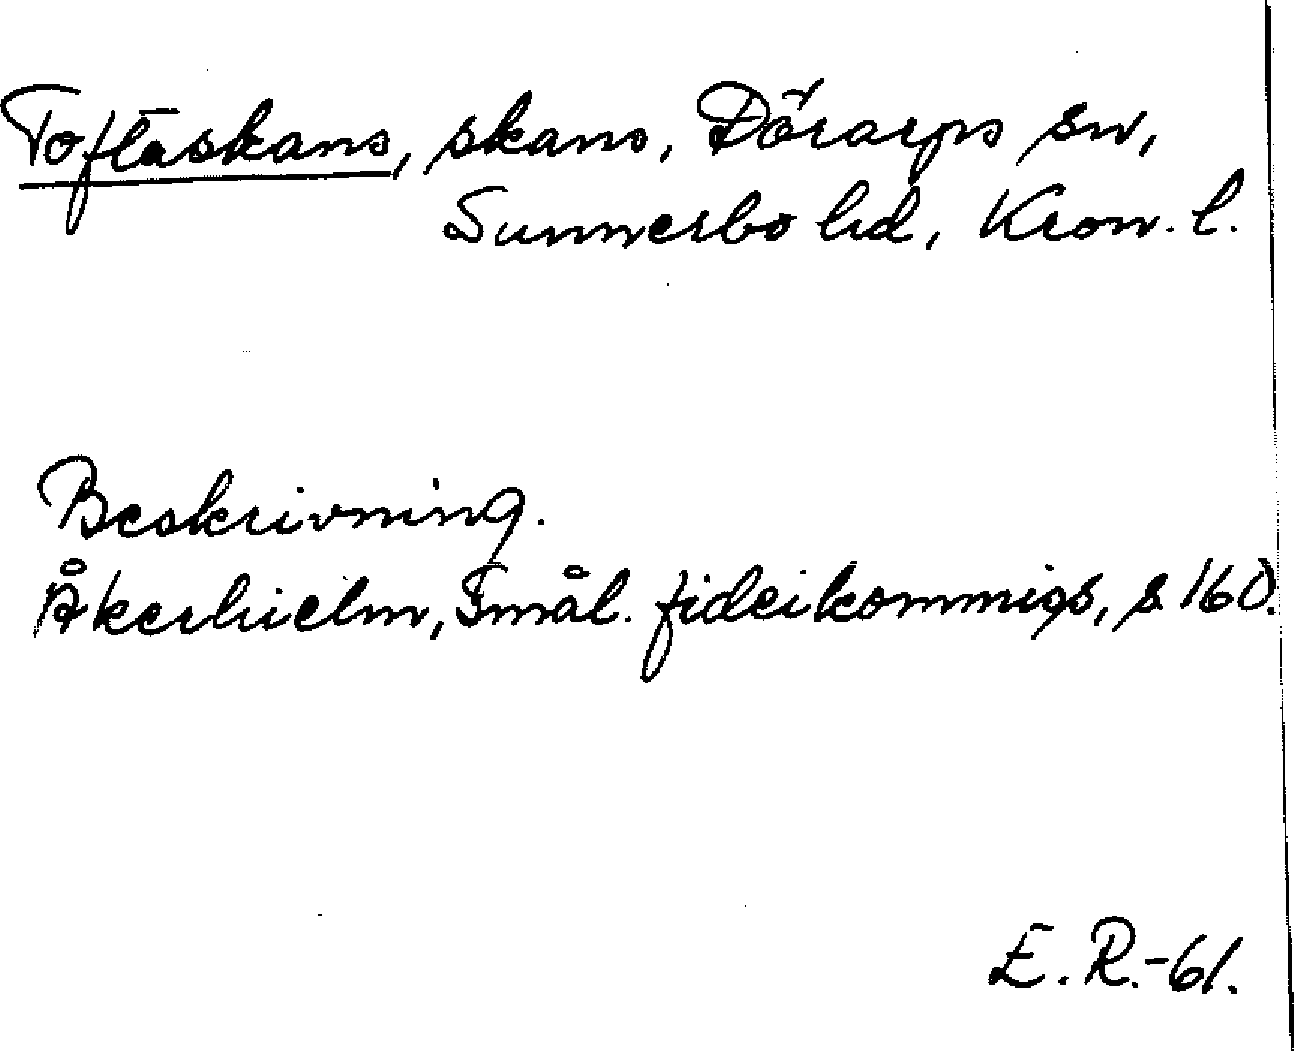 Toftaskans, skans, Dörarps sn,
Sunnerbo hd, Kron. l.
Beskrivning.
Åkerhielm, Smål. fideikommiss, s 160.
E. R.-61.